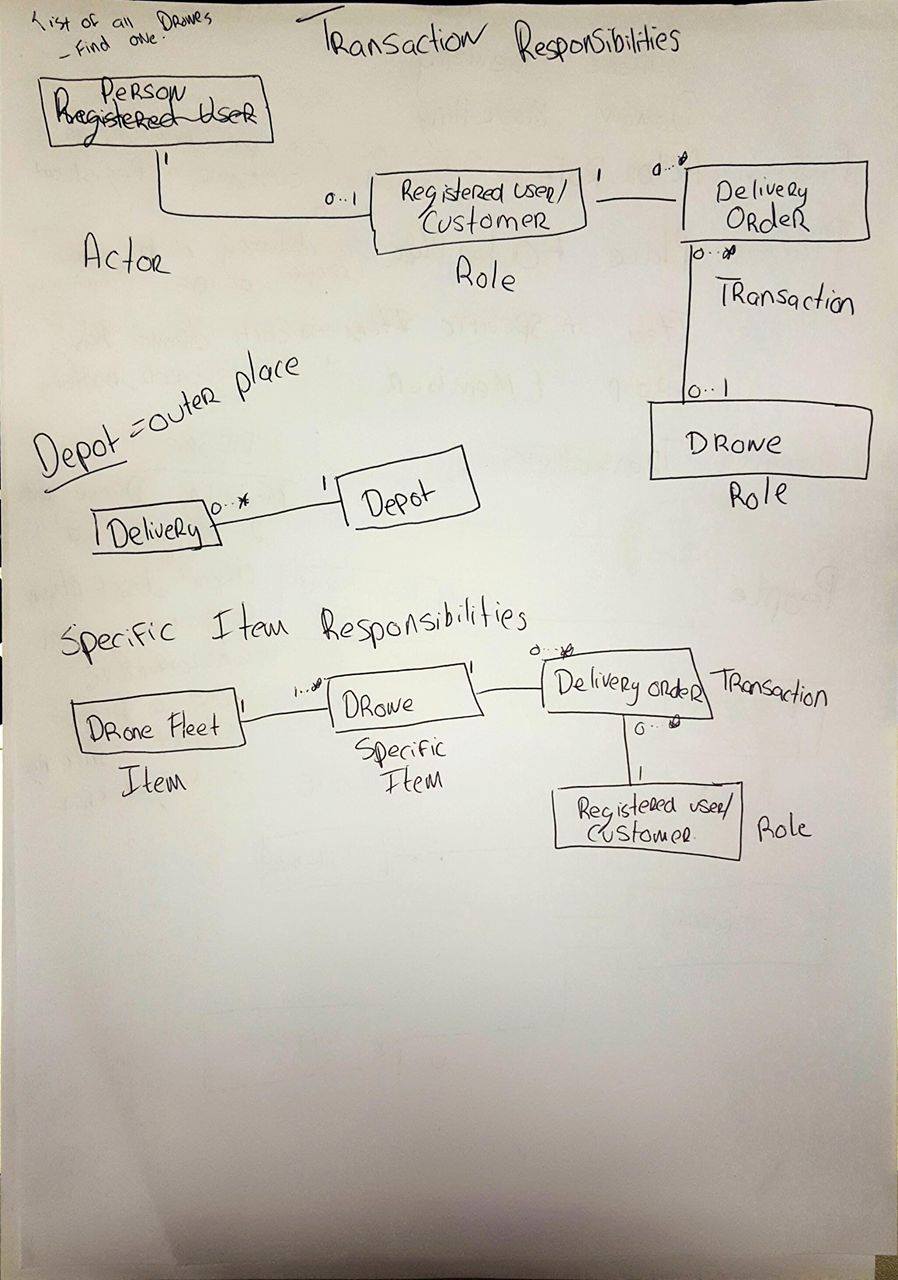 List of all Drones
- Find one.
Transaction Responsibilities
Person
Registered User
1
0..1
Registered user/
Customer
1
0..*
Delivery
Order
Actor
Role
0..*
Transaction
0..1
Drone
Role
Depot = outer place
Delivery
0..*
1
Depot
Specific Item Responsibilities
Drone Fleet
1
1..*
Drone
1
0..*
Delivery order
Transaction
Item
Specific
Item
0..*
1
Registered user/
Customer
Role